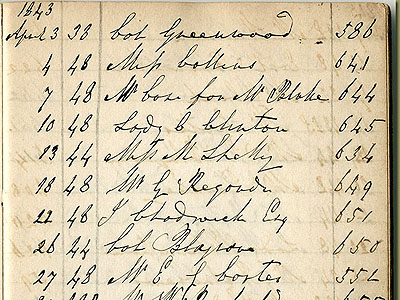 1843
April 3 38 Col Greenwood 586
4 48 Miss Collins 641
7 48 Mr Case for Mr Blake 644
10 48 Lady C Clinton 645
13 44 Miss M Shelly 634
18 48 Mr G Regondi 649
22 48 J Chadwick Esq 651
26 44 Col Blagrove 650
27 48 Mr E J 552